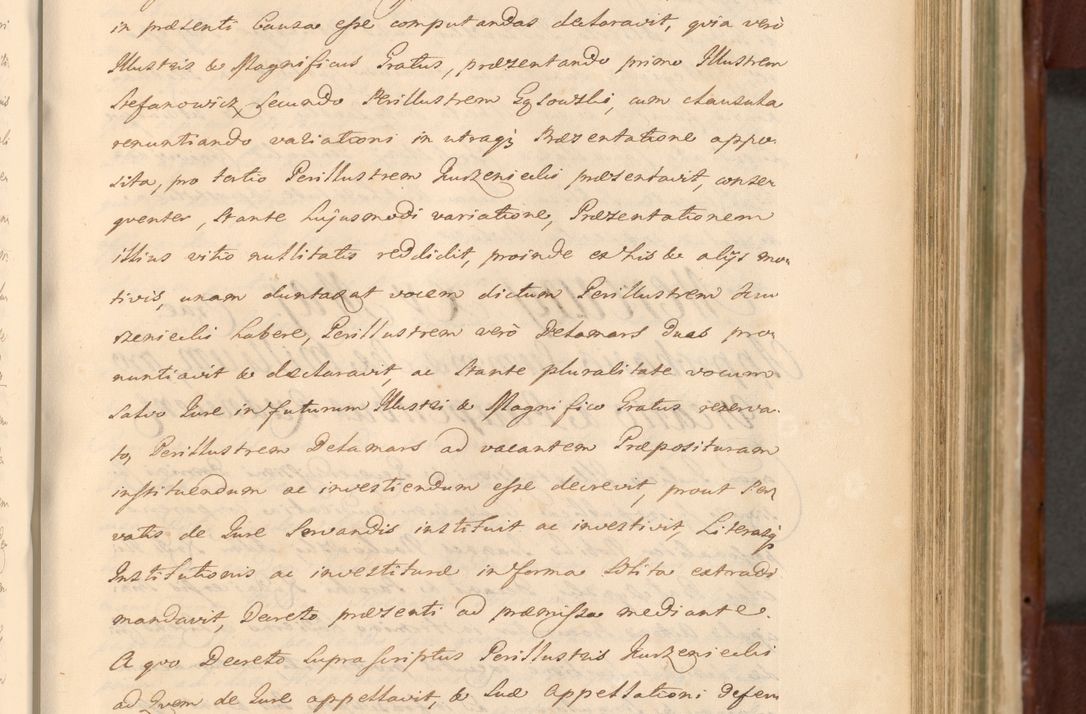 in præsenti Causa esse computandas declaravit, quia verò
Illustris & Magnificus Gratus, præzentando primo Illustrem
Stefanowicz, Secundo Perillustrem Ezsowski, cum clausula
renuntiando variationi in utraq; Præzentatione appo-
sita, pro tertio Perillustrem Kurzeniecki præsentavit, conse-
quenter, Stante hujusmodi variatione, Præzentationem
illius vitio nullitatis reddidit, proinde ex his & alijs mo-
tivis, unam duntaxat vocem dictum Perillustrem Kur
zeniecki habere, Perillustrem verò Delamars duas pro-
nuntiavit & declaravit, ac Stante pluralitate vocum
Salvo Jure in futurum Illustri & Magnifico Gratus rezerva-
to, Perillustrem Delamars ad vacantem Præposituram
instituendum ac investiendum esse decrevit, prout Ser
vatis de Jure Servandis instituit ac investivit, Literasq;
Institutionis ac investituræ in forma Solita extradi
mandavit, Decreto præzenti ad præmissa mediante.
A quo Decreto Suprascriptus Perillustris Kurzeniecki
ad Quem de Jure appellavit, & Suæ Appellationi defem